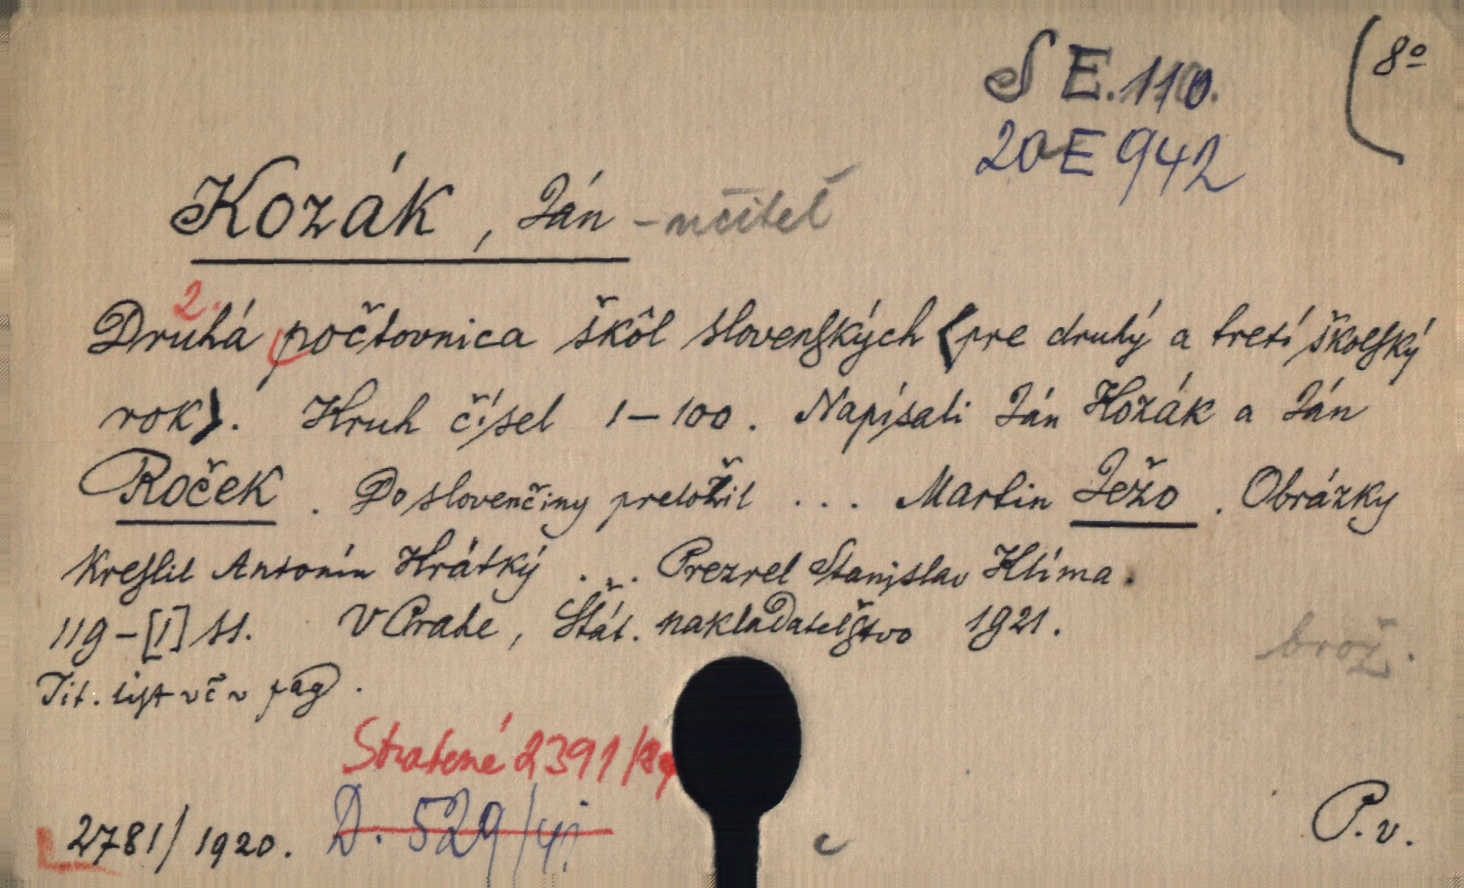 S E.110.
8º
20 E 942
Kozák, Ján - učiteľ
2.
Druhá počtovnica škôl slovenských (pre druhý a tretí školský
rok). Kruh čísel 1-100. Napísali Ján Kozák a Ján
Roček. Do slovenčiny preložil ... Martin Ježo. Obrázky
kreslil Antonín Hrátký ... Prezrel Stanislav Klíma.
119-[I] ss. V Prahe, Štát. nakladateľstvo 1921.
brož.
Tit. list vč v pag.
Stratené 2391/
2781/1920. D. 529/
P.v.